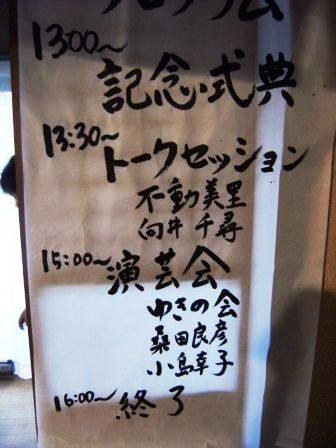 プログラム
13:00〜
記念式典
13:30〜
トークセッション
不動美里
向井千尋
15:00〜
演芸会
ゆきの会
桑田良彦
小島幸子
16:00〜
終了